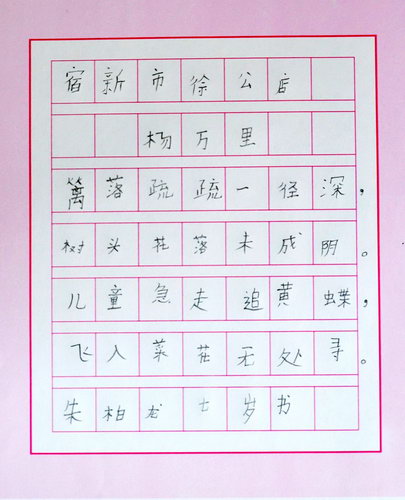 宿新市徐公店
杨万里
篱落疏疏一径深，
树头花落未成阴。
儿童急走追黄蝶，
飞入菜花无处寻。
朱柏龙七岁书